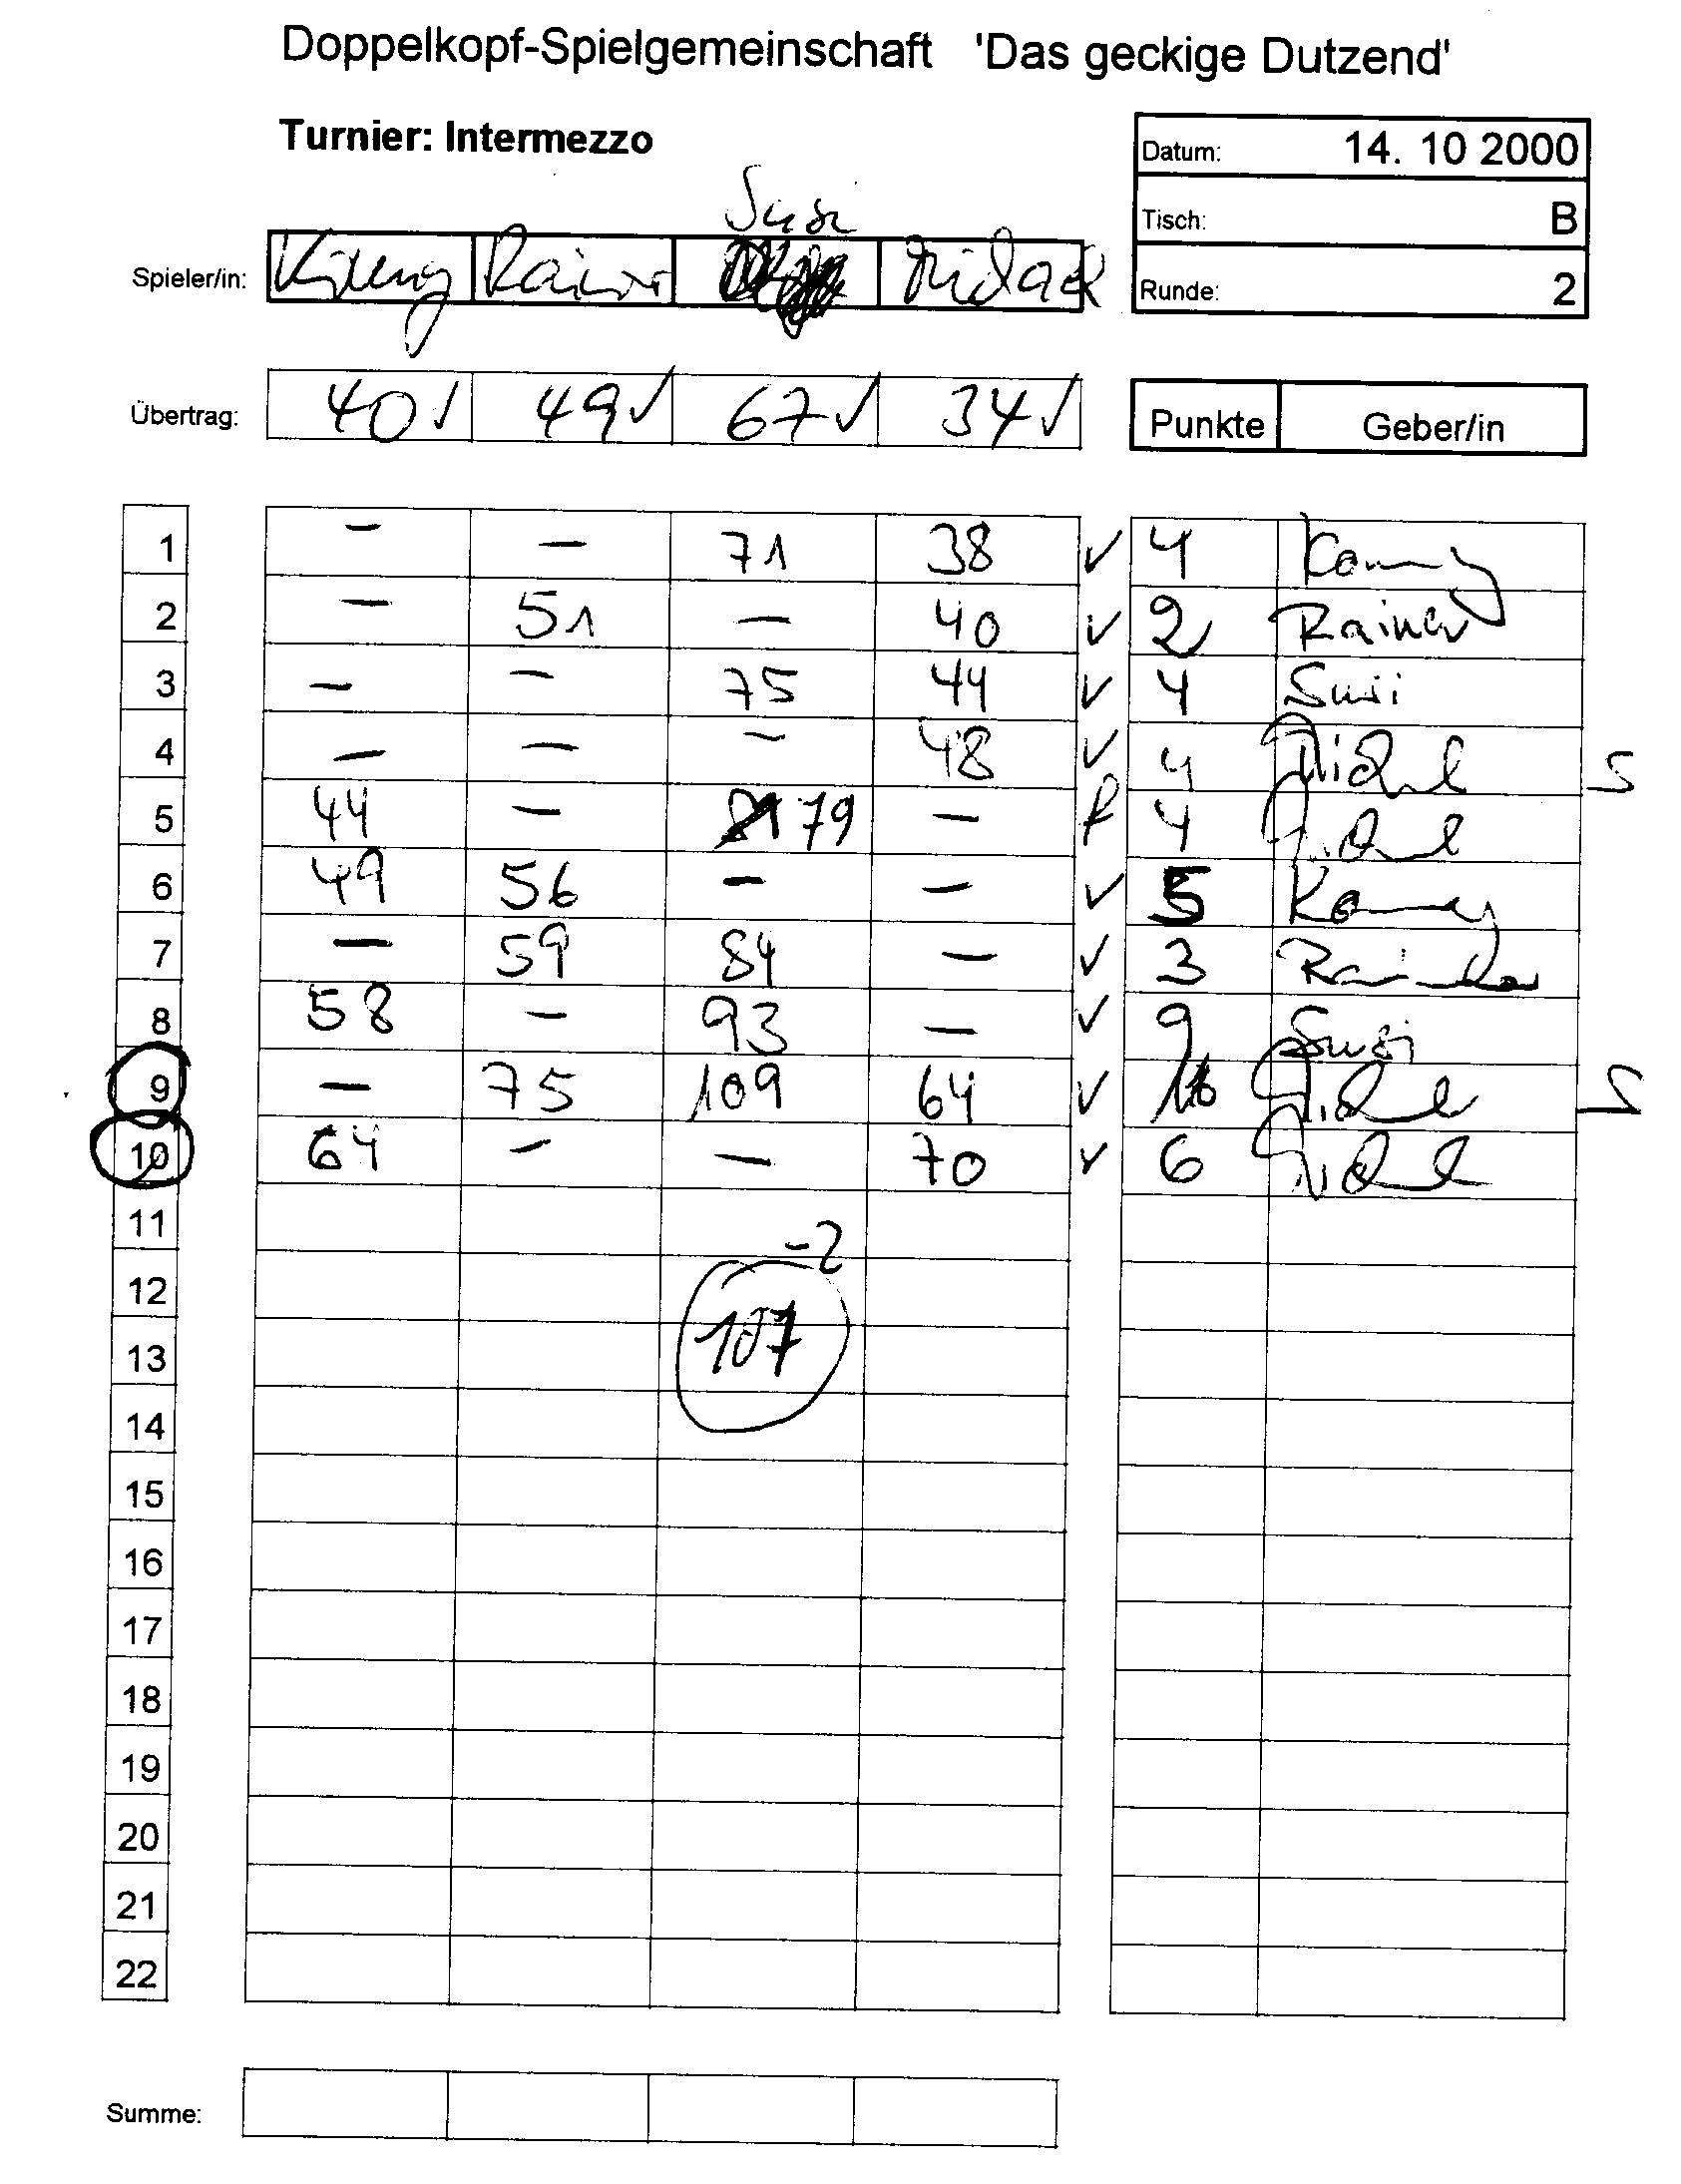 Doppelkopf-Spielgemeinschaft 'Das geckige Dutzend'
Turnier: Intermezzo
Datum: 14. 10 2000
Tisch: B
Runde: 2
Susi
Spieler/in: Rainer
Übertrag: 40 ✓ 49 ✓ 67 ✓ 34 ✓
Punkte Geber/in
1 - - 71 38 ✓ 4
2 - 51 - 40 ✓ 2 Rainer
3 - - 75 44 ✓ 4 Susi
4 - - - 48 ✓ 4 S
5 44 - 79 - 4
6 49 56 - - ✓ 5
7 - 59 84 - ✓ 3 Rainer
8 58 - 93 - ✓ 9 Susi
9 - 75 109 64 ✓ 16 S
10 64 - - 70 ✓ 6
11
-2
12
107
13
14
15
16
17
18
19
20
21
22
Summe: